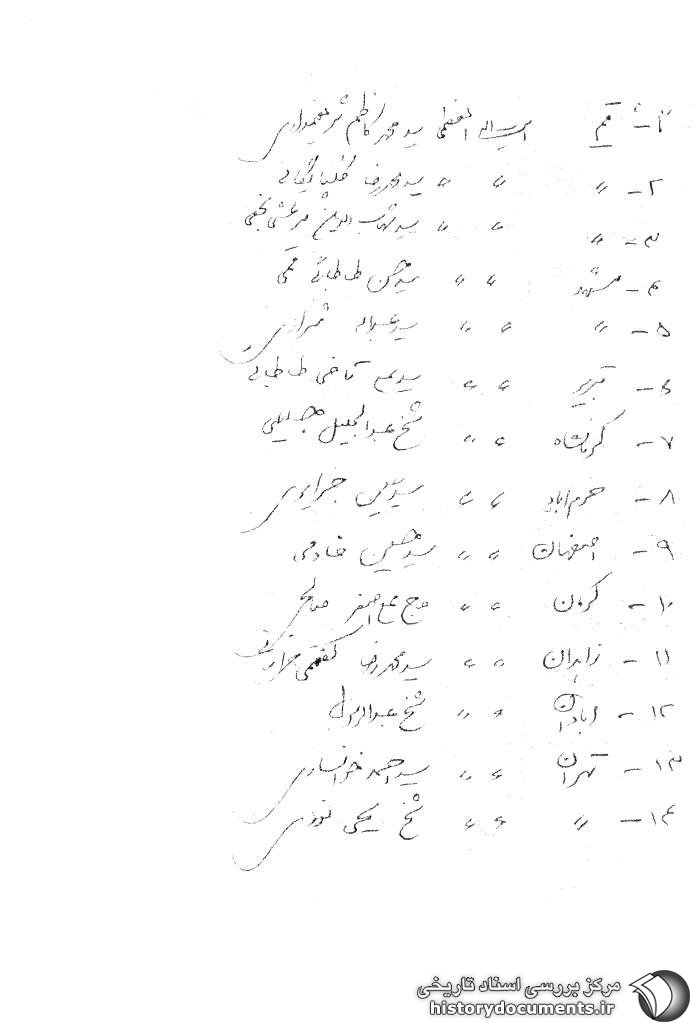 ۱- قم آیت الله العظمی سید محمد کاظم شریعتمداری
۲- " " " سید محمدرضا گلپایگانی
۳- " " " سید شهاب الدین مرعشی نجفی
۴- مشهد " " سید حسن طباطبائی قمی
۵- " " " سید عبداله شیرازی
۶- تبریز " " سید محمد علی قاضی طباطبائی
۷- کرمانشاه " " شیخ عبدالجلیل جلیلی
۸- خرم آباد " " سید عیسی جزایری
۹- اصفهان " " سید حسین خادمی
۱۰- کرمان " " علی اصغر صالحی
۱۱- زاهدان " " سید محمدرضا کفعمی خراسانی
۱۲- آبادان " " شیخ عبدالرسول
۱۳- تهران " " سید احمد خوانساری
۱۴- " " " شیخ یحیی نوری
مرکز بررسی اسناد تاریخی
historydocuments.ir